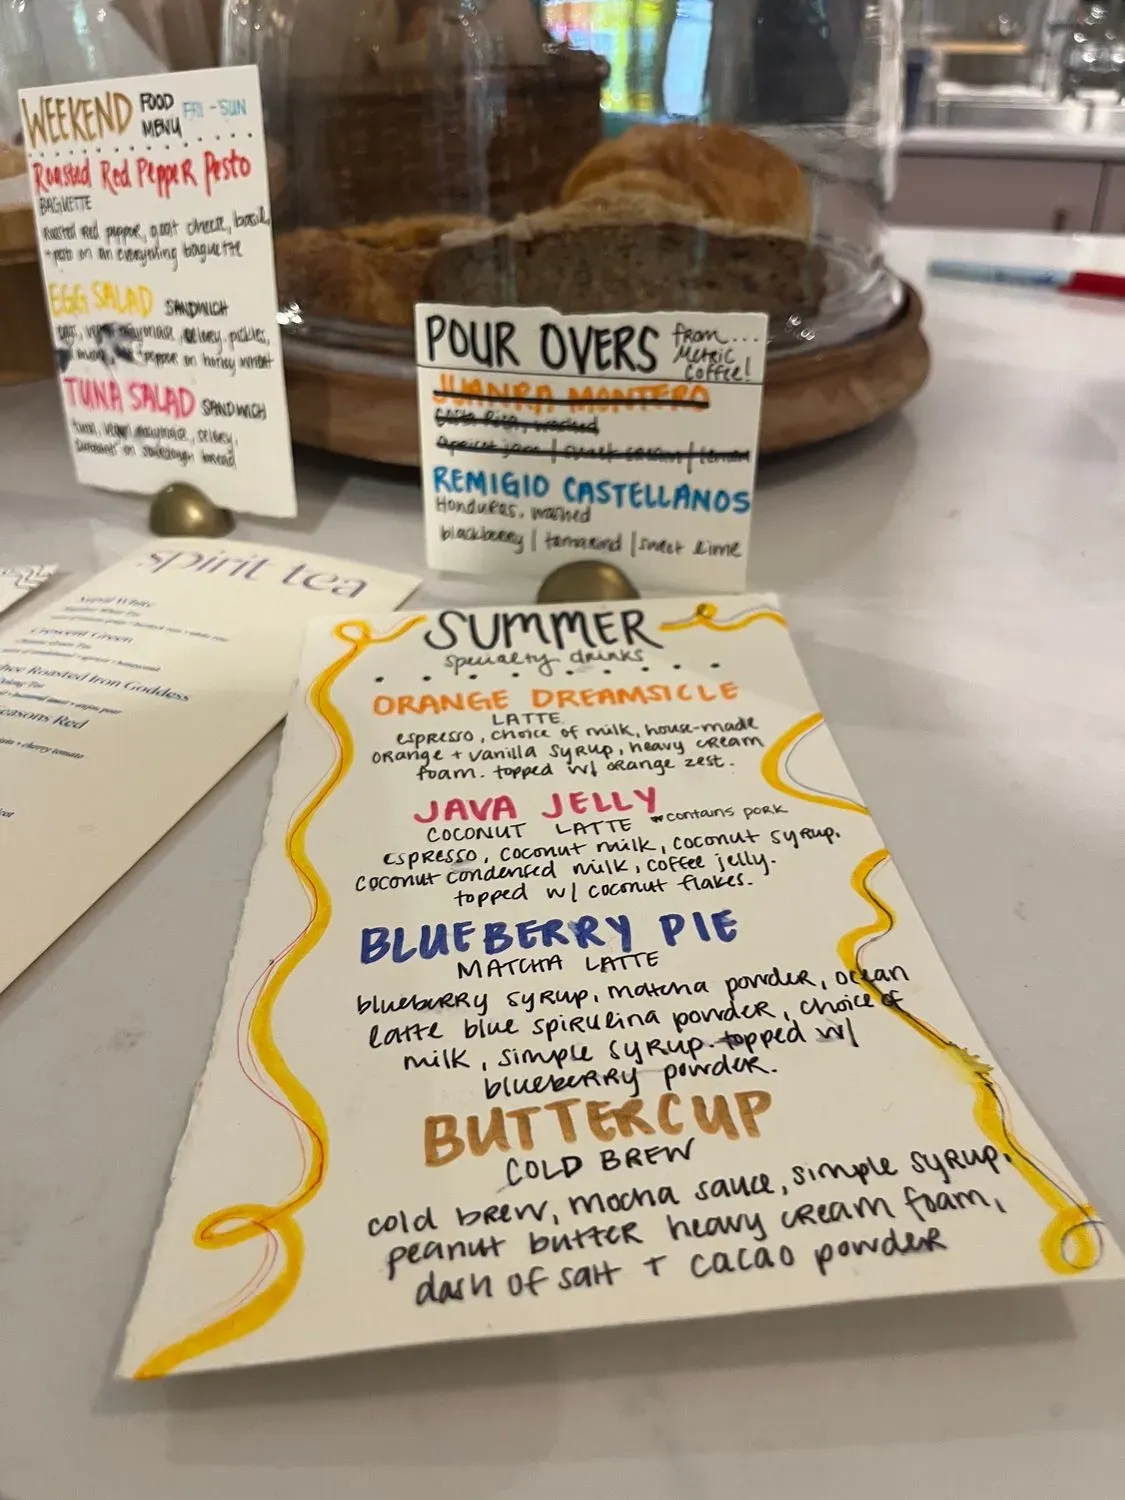 WEEKEND FOOD MENU FRI - SUN
Roasted Red Pepper Pesto
BAGUETTE
roasted red pepper, goat cheese, basil,
+ pesto on an everything baguette
EGG SALAD SANDWICH
eggs, vegan mayonaise, celery, pickles,
+ pepper on honey wheat
TUNA SALAD SANDWICH
tuna, vegan mayonaise, celery,
on sourdough bread
POUR OVERS from... Metric Coffee!
JUANRA MONTERO
Costa Rica, washed
apricot jam | sweet cream | lemon
REMIGIO CASTELLANOS
Honduras, washed
blackberry | tamarind | sweet lime
spirit tea
Nepal White
Crescent Green
Roasted Iron Goddess
Seasons Red
SUMMER
specialty drinks
ORANGE DREAMSICLE
LATTE
espresso, choice of milk, house-made
orange + vanilla syrup, heavy cream
foam. topped w/ orange zest.
JAVA JELLY
COCONUT LATTE *contains pork
espresso, coconut milk, coconut syrup,
coconut condensed milk, coffee jelly.
topped w/ coconut flakes.
BLUEBERRY PIE
MATCHA LATTE
blueberry syrup, matcha powder, ocean
latte blue spirulina powder, choice of
milk, simple syrup. topped w/
blueberry powder.
BUTTERCUP
COLD BREW
cold brew, mocha sauce, simple syrup,
peanut butter heavy cream foam,
dash of salt + cacao powder